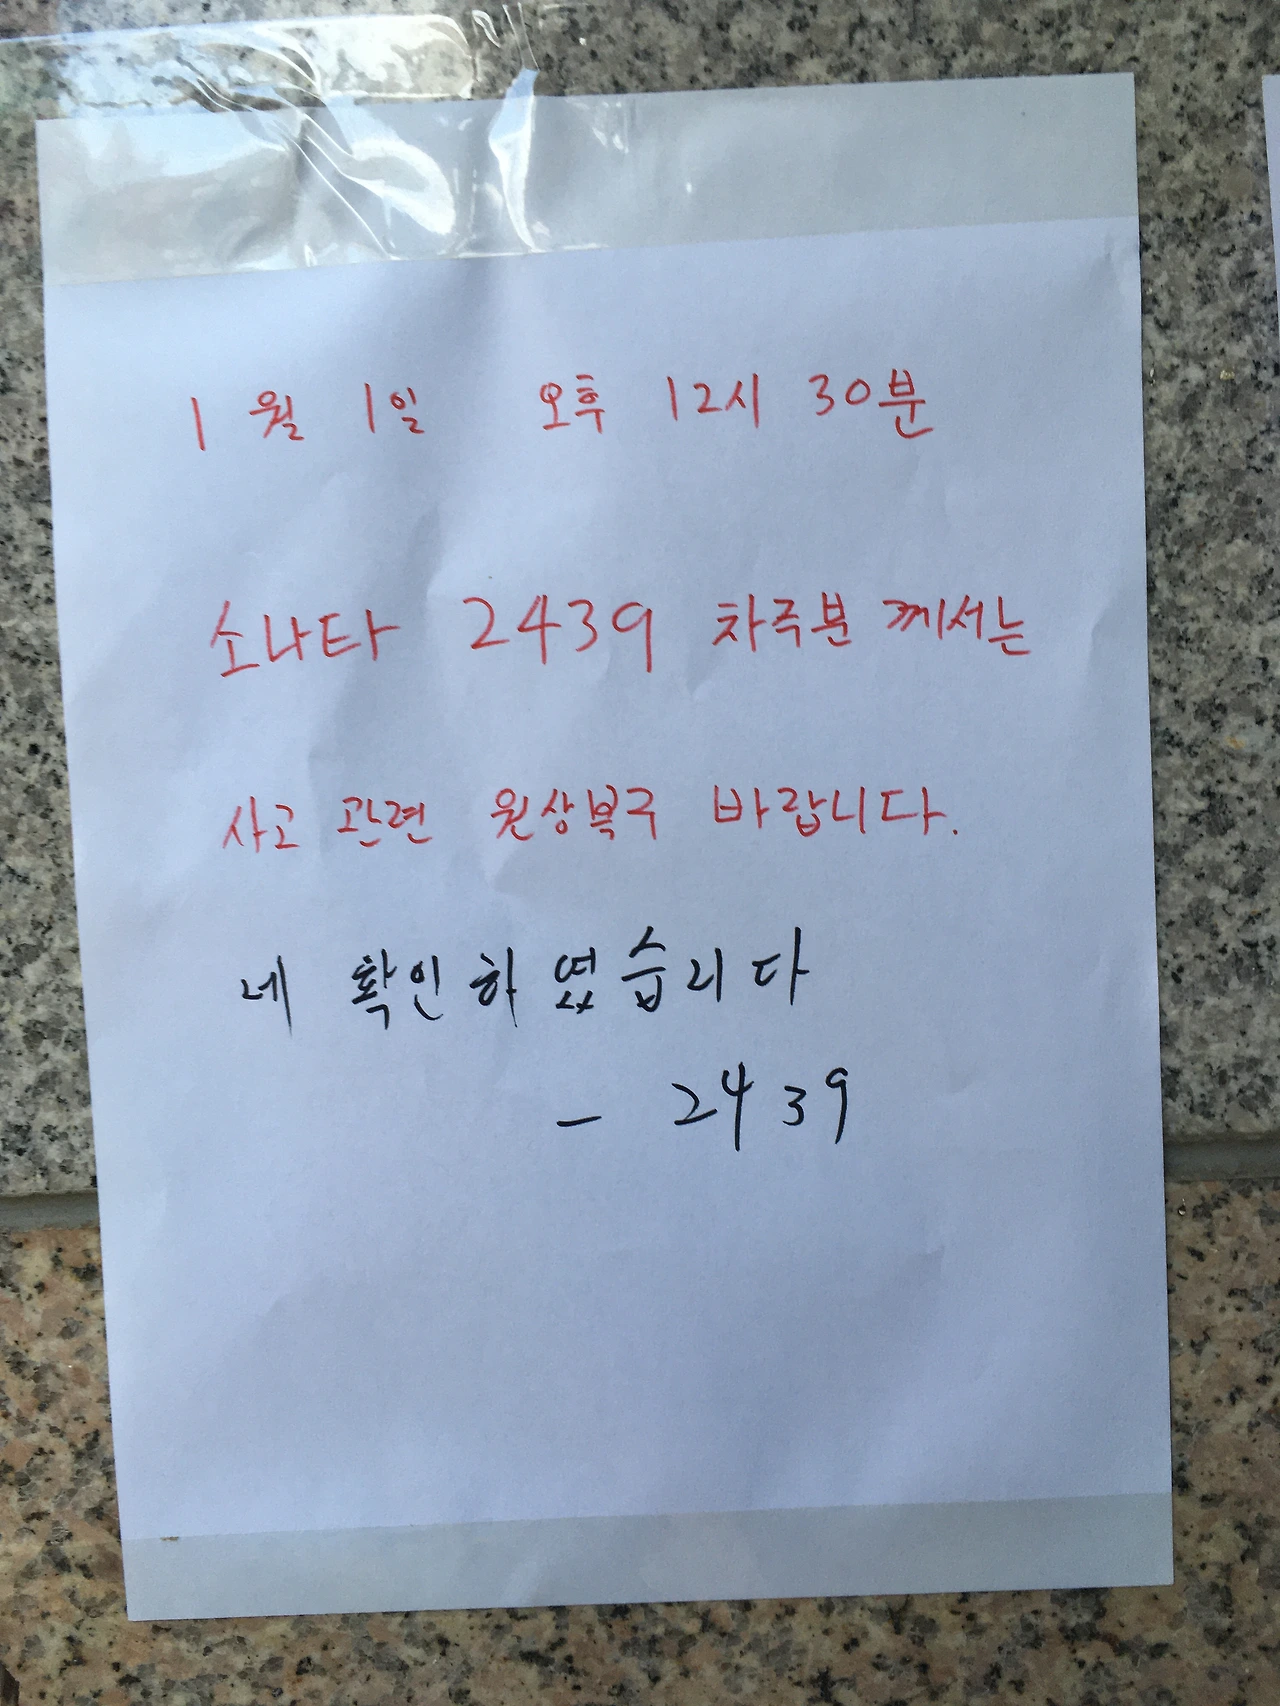 1월 1일 오후 12시 30분
소나타 2439 차주분 께서는
사고 관련 원상복구 바랍니다.
네 확인하였습니다
- 2439